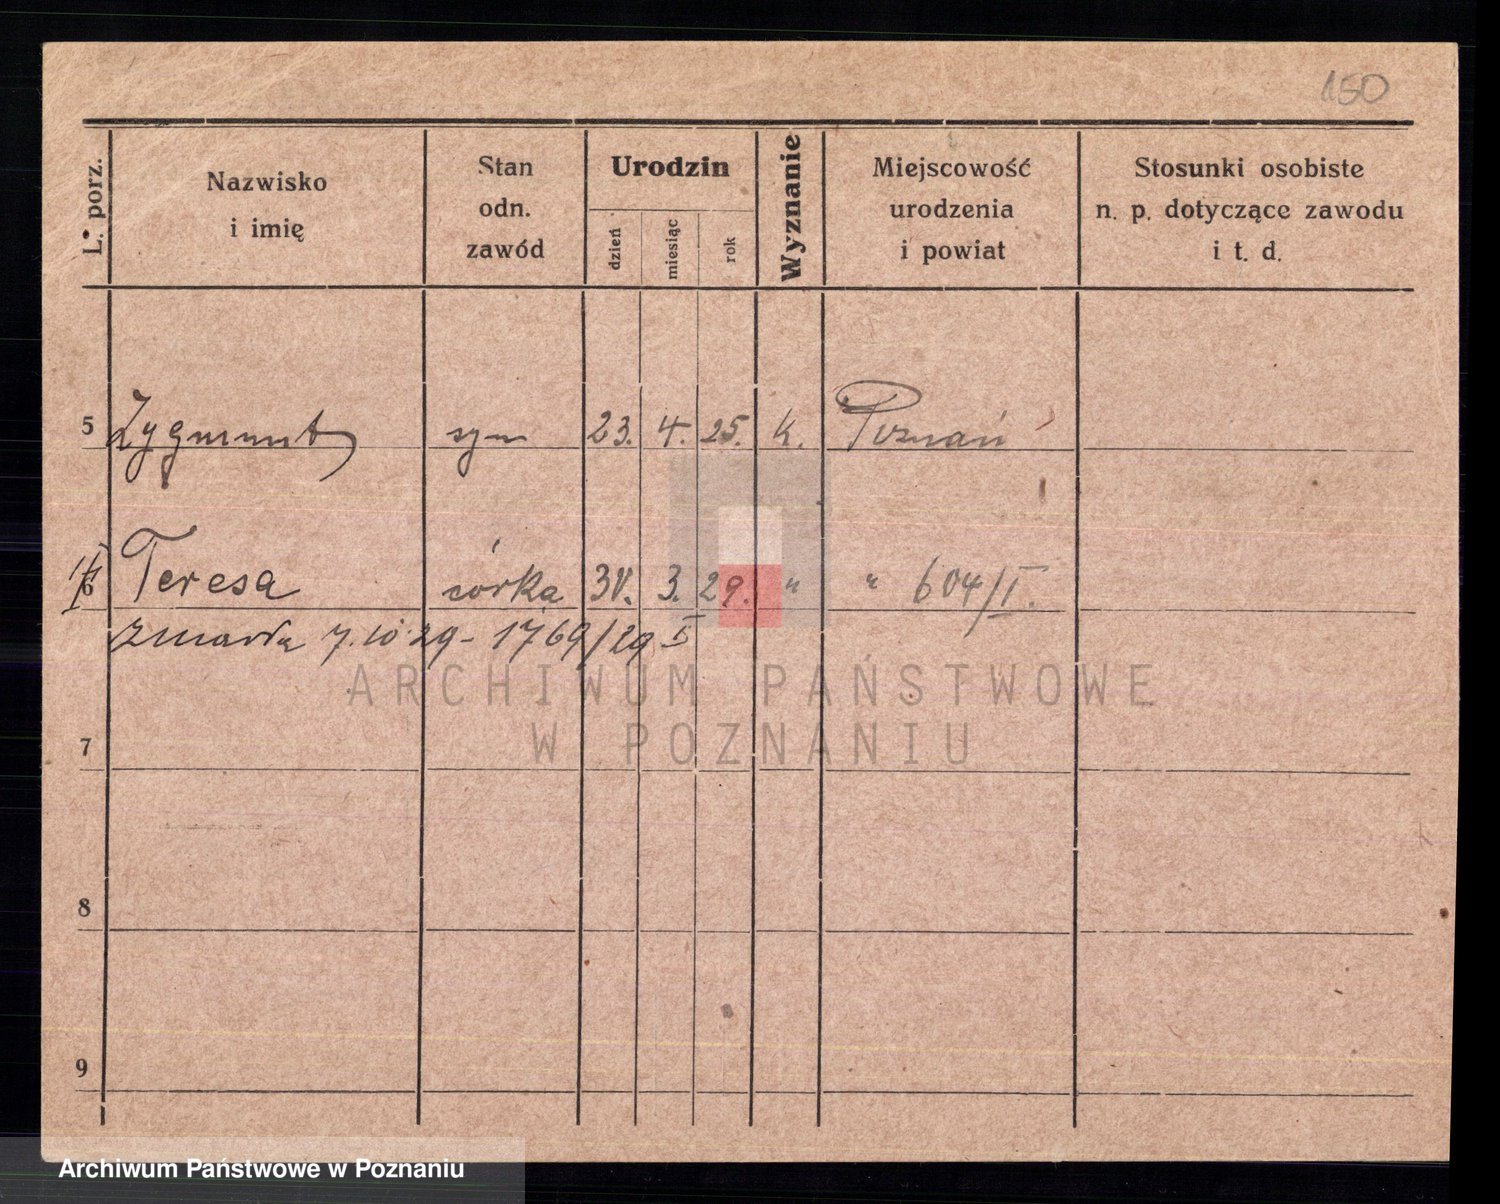 150
L. porz.
Nazwisko
i imię
Stan
odn.
zawód
Urodzin
dzień
miesiąc
rok
Wyznanie
Miejscowość
urodzenia
i powiat
Stosunki osobiste
n. p. dotyczące zawodu
i t. d.
5 Zygmunt syn 23. 4. 25. K. Poznań
6 Teresa córka 30. 3. 29. " " 604/I.
zmarła 7.10.29 - 1769/29 I
7
8
9
ARCHIWUM PAŃSTWOWE
W POZNANIU
Archiwum Państwowe w Poznaniu